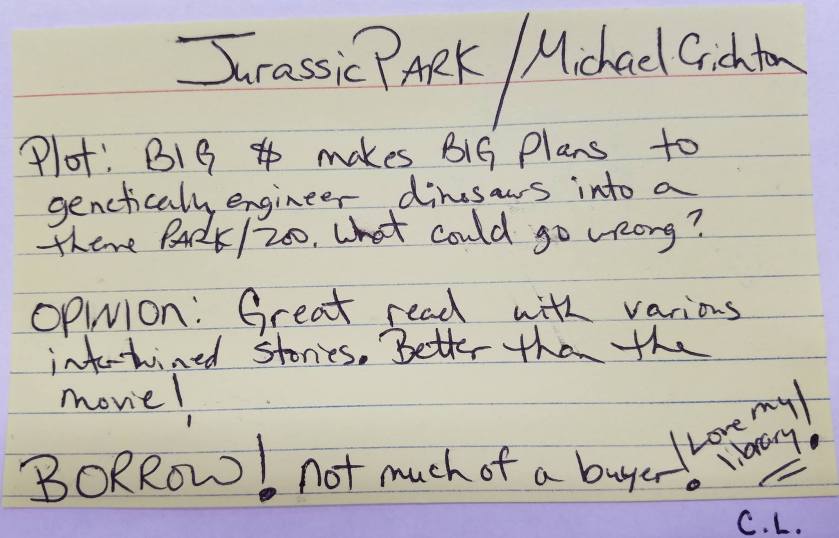 Jurassic PARK / Michael Crichton
Plot: BIG $ makes BIG Plans to
genetically engineer dinosaurs into a
theme PARK/ZOO. What could go wrong?
OPINION: Great read with various
intertwined stories. Better than the
movie!
BORROW! not much of a buyer!
Love my
library!
C.L.